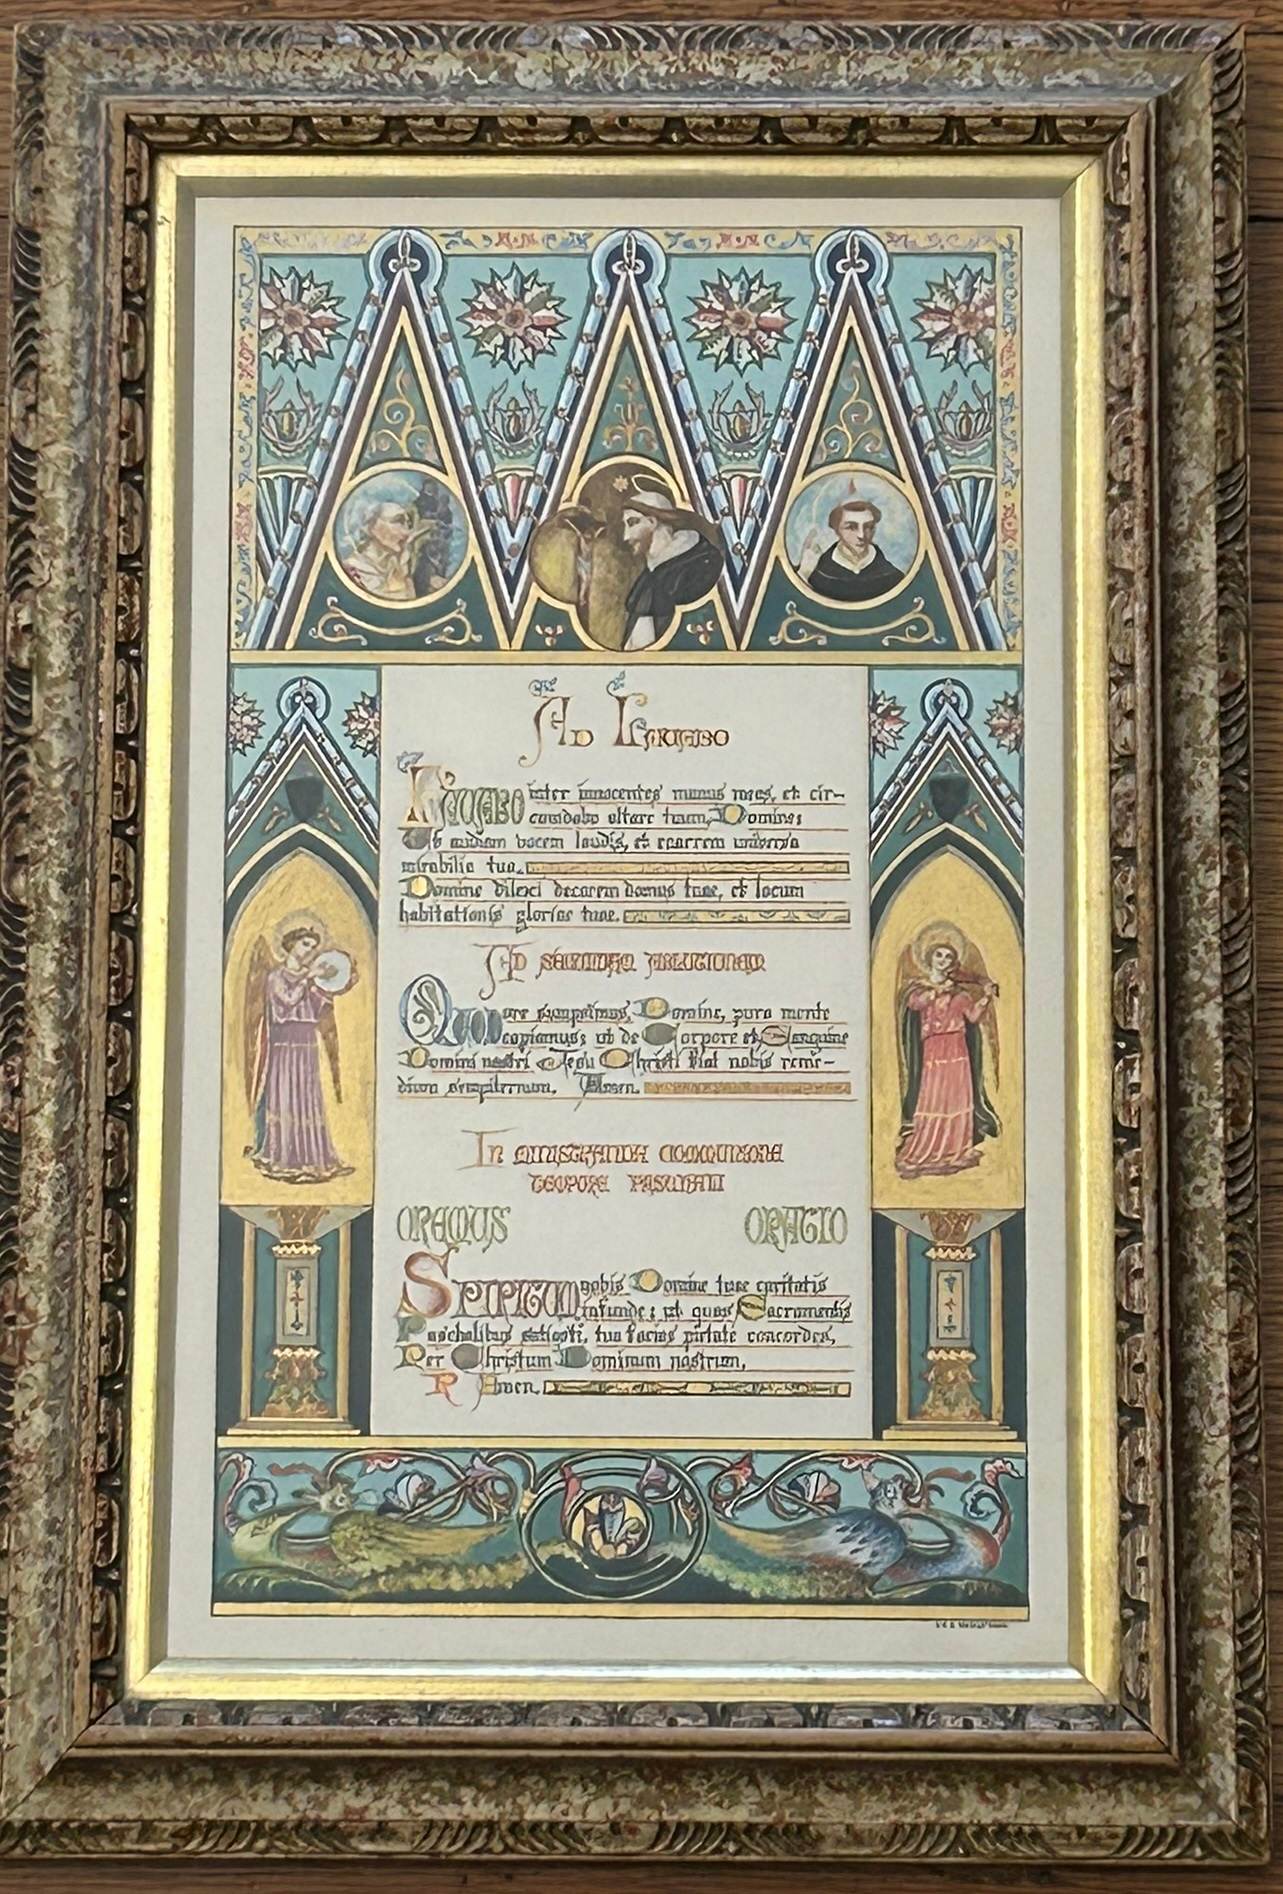 Ad Lavabo
Lavabo inter innocentes manus meas, et cir-
cumdabo altare tuum, Domine:
Ut audiam vocem laudis, et enarrem universa
mirabilia tua.
Domine dilexi decorem domus tuae, et locum
habitationis gloriae tuae.
Ad secundam ablutionem
Quod ore sumpsimus, Domine, pura mente
capiamus: ut de Corpore et Sanguine
Domini nostri Jesu Christi fiat nobis reme-
dium sempiternum. Amen.
In ministranda communione
tempore paschali
OREMUS ORATIO
SPIRITUM nobis Domine tuae caritatis
infunde: ut quos Sacramentis
Paschalibus satiasti, tua facias pietate concordes,
Per Christum Dominum nostrum,
R Amen.